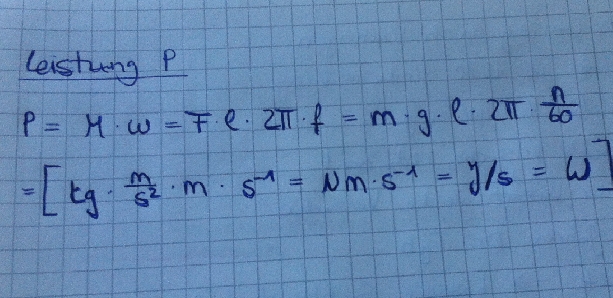 Leistung P
P = M · ω = F · l · 2π · f = m · g · l · 2π · n/60
= [kg · m/s² · m · s⁻¹ = Nm · s⁻¹ = J/s = W]